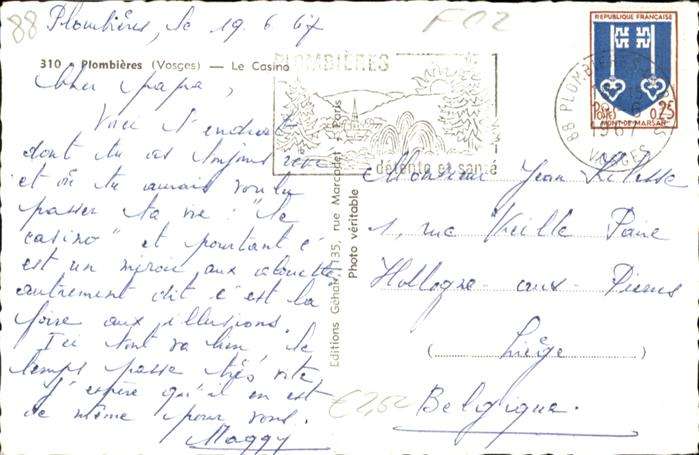 88
Plombières, le 19.6.67
F02
310 - Plombières (Vosges) - Le Casino
Cher papa,
Voici l'endroit
dont tu as toujours rêvé
et où tu aurais voulu
passer ta vie : "le
casino" et pourtant c'
est un miroir aux alouettes
autrement dit c'est la
foire aux illusions.
Ici tout va bien, le
temps passe très vite
J'espère qu'il en est
de même pour vous.
Maggy
Editions Gehan, 135, rue Marcadet - Paris
Photo véritable
PLOMBIÈRES
détente et santé
88 PLOMBIÈRES
1967
VOSGES
REPUBLIQUE FRANÇAISE
Postes 0,25
MONT-DE-MARSAN
Monsieur Jean
1, rue Vieille Paire
Hollogne-aux-Pierres
(Liège)
Belgique.
€2,50